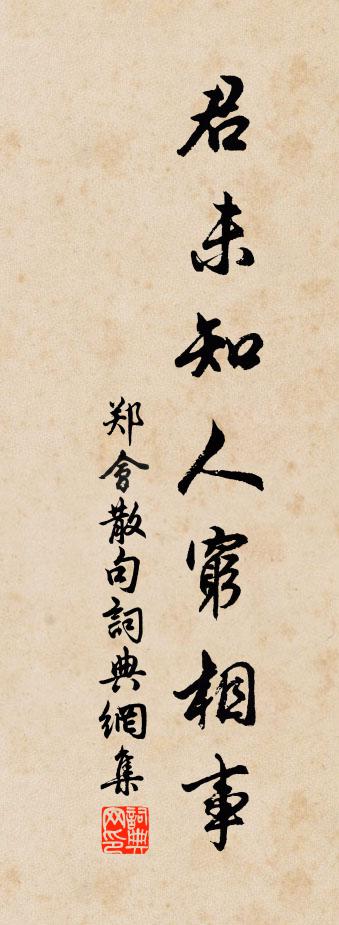 君未知人窮相事
郑會散句詞典網集
詞典网印